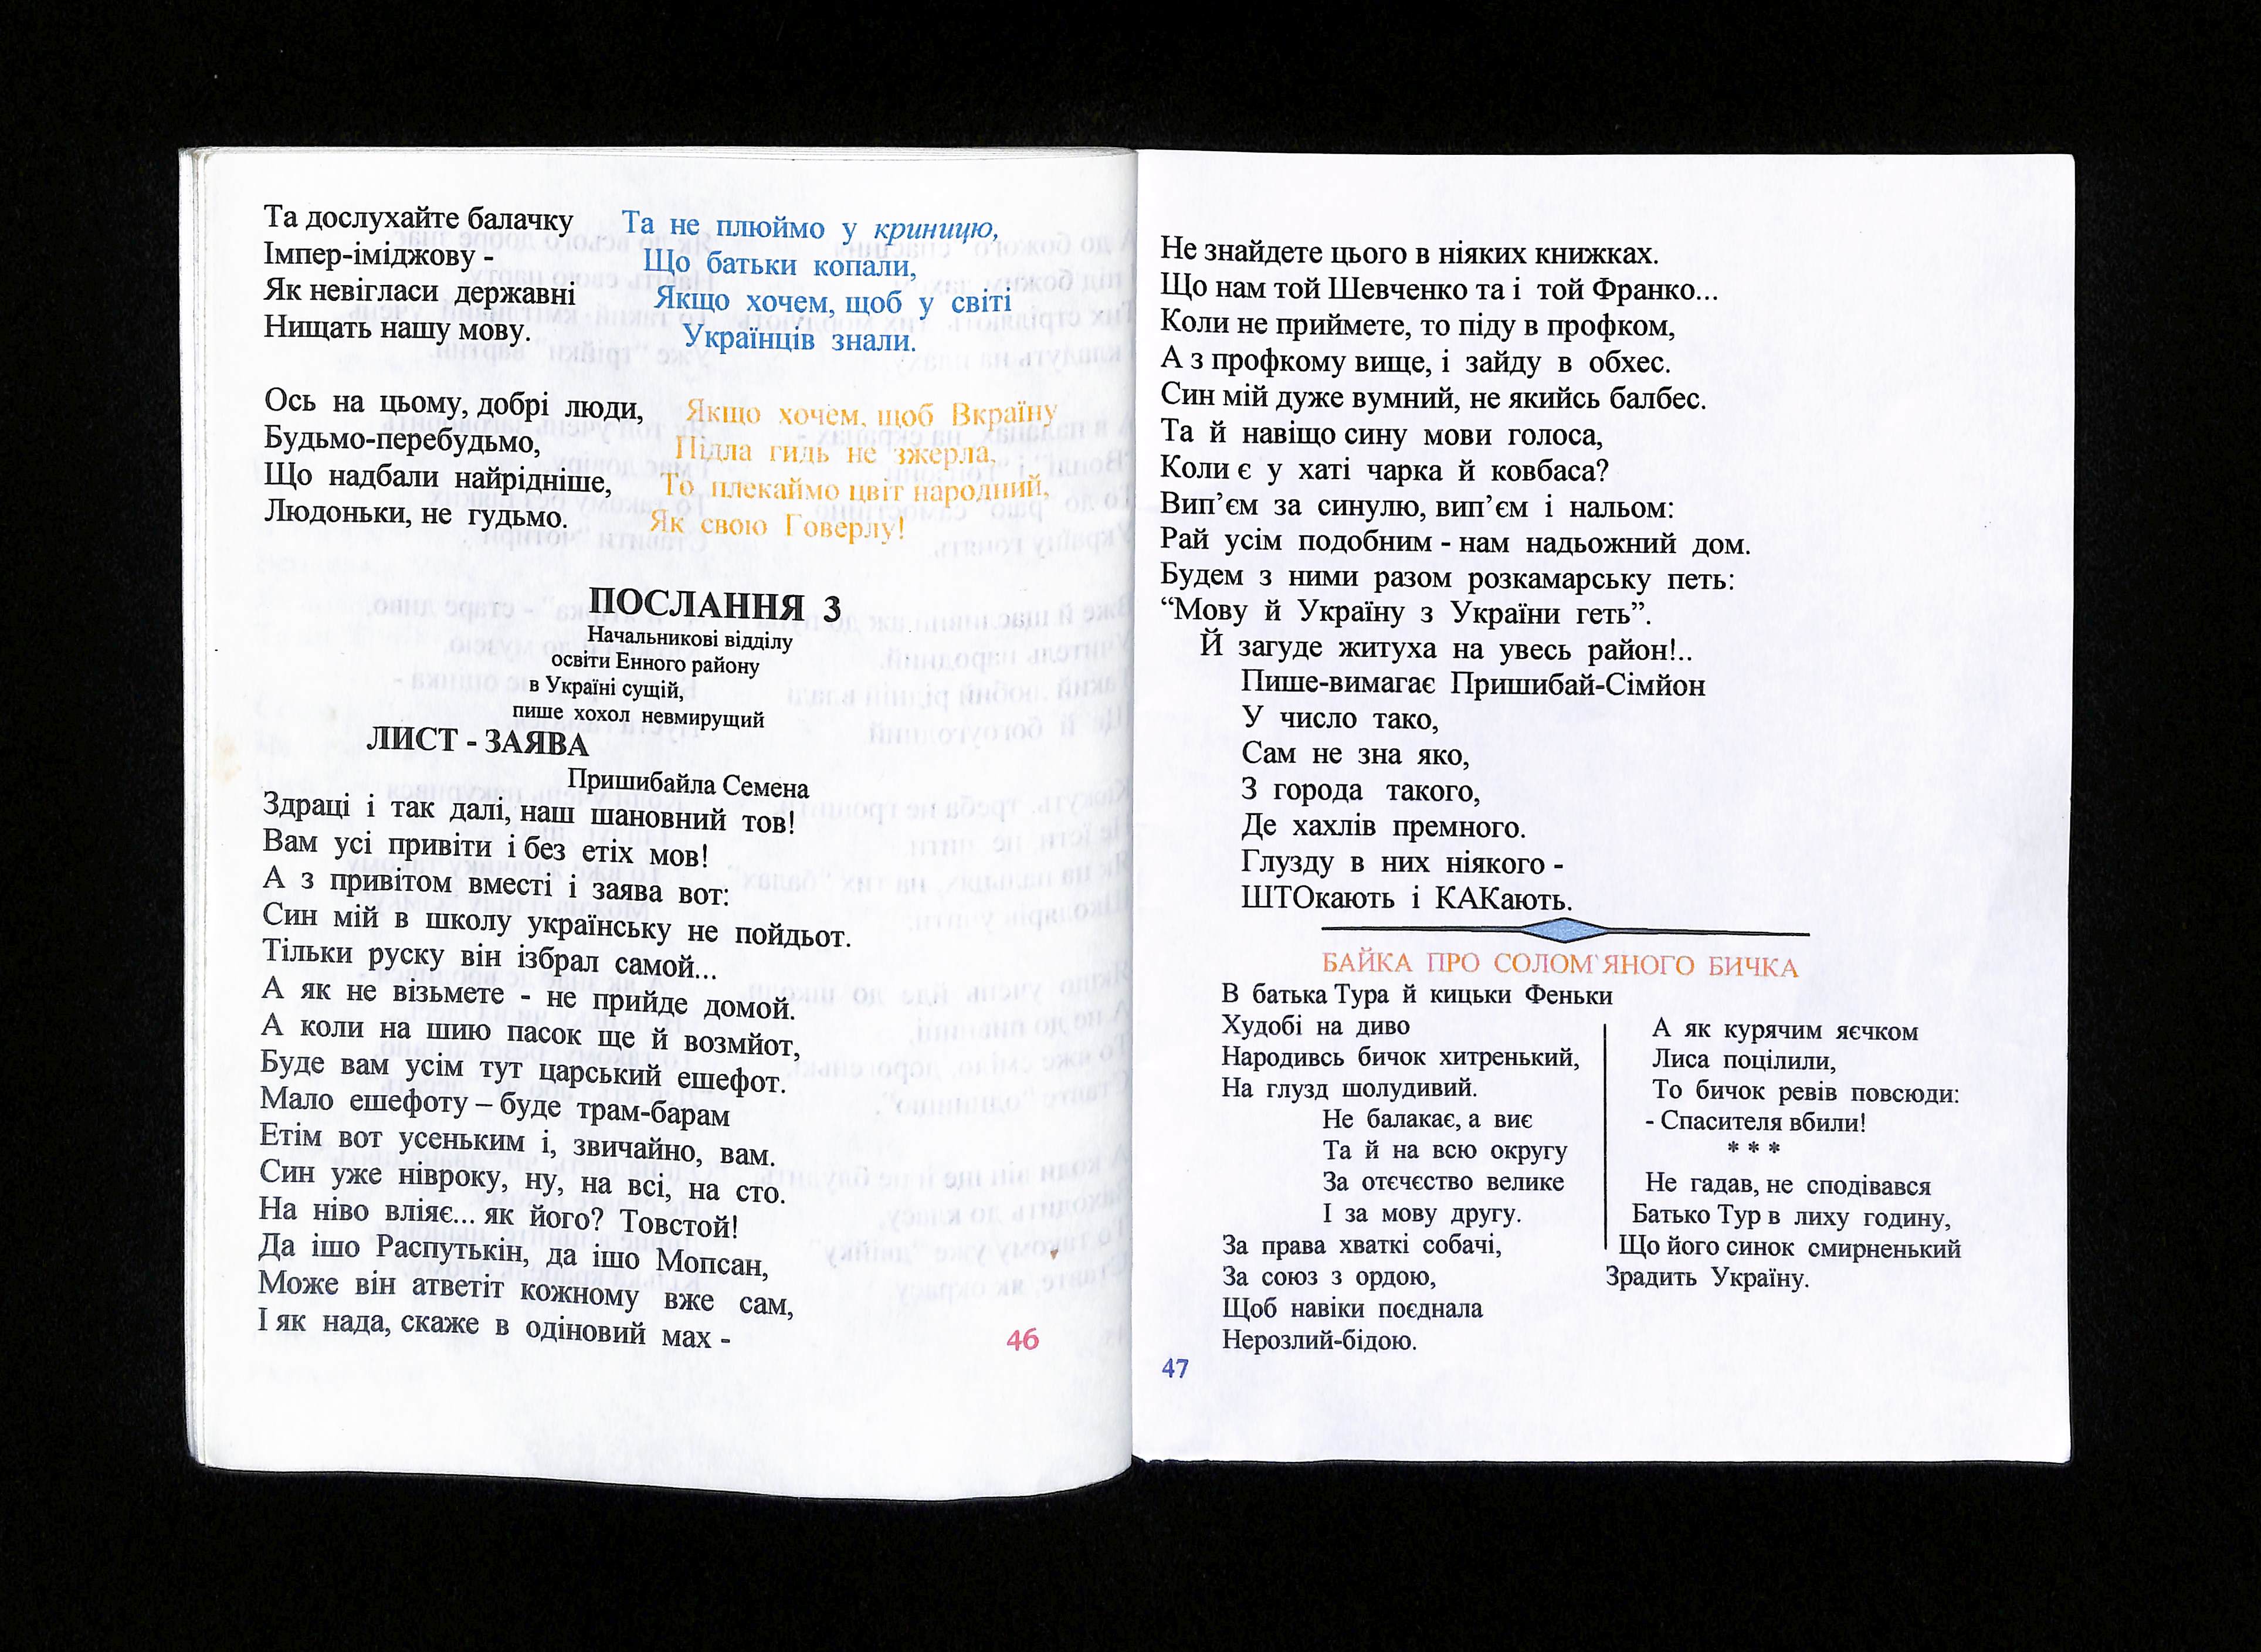 Та дослухайте балачку
Імпер-іміджову -
Як невігласи державні
Нищать нашу мову.
Та не плюймо у криницю,
Що батьки копали,
Якщо хочем, щоб у світі
Українців знали.
Ось на цьому, добрі люди,
Будьмо-перебудьмо,
Що надбали найрідніше,
Людоньки, не гудьмо.
Якщо хочем, щоб Вкраїну
Підла гидь не зжерла,
То плекаймо цвіт народний,
Як свою Говерлу!
ПОСЛАННЯ 3
Начальникові відділу
освіти Енного району
в Україні сущій,
пише хохол невмирущий
ЛИСТ - ЗАЯВА
Пришибайла Семена
Здраці і так далі, наш шановний тов!
Вам усі привіти і без етіх мов!
А з привітом вместі і заява вот:
Син мій в школу українську не пойдьот.
Тільки руску він ізбрал самой...
А як не візьмете - не прийде домой.
А коли на шию пасок ще й возмйот,
Буде вам усім тут царський ешефот.
Мало ешефоту – буде трам-барам
Етім вот усеньким і, звичайно, вам.
Син уже нівроку, ну, на всі, на сто.
На ніво вліяє... як його? Товстой!
Да ішо Распутькін, да ішо Мопсан,
Може він атветіт кожному вже сам,
І як нада, скаже в одіновий мах -
46
Не знайдете цього в ніяких книжках.
Що нам той Шевченко та і той Франко...
Коли не приймете, то піду в профком,
А з профкому вище, і зайду в обхес.
Син мій дуже вумний, не якийсь балбес.
Та й навіщо сину мови голоса,
Коли є у хаті чарка й ковбаса?
Вип’єм за синулю, вип’єм і нальом:
Рай усім подобним - нам надьожний дом.
Будем з ними разом розкамарську петь:
“Мову й Україну з України геть”.
Й загуде житуха на увесь район!..
Пише-вимагає Пришибай-Сімйон
У число тако,
Сам не зна яко,
З города такого,
Де хахлів премного.
Глузду в них ніякого -
ШТОкають і КАКають.
БАЙКА ПРО СОЛОМ`ЯНОГО БИЧКА
В батька Тура й кицьки Феньки
Худобі на диво
Народивсь бичок хитренький,
На глузд шолудивий.
Не балакає, а виє
Та й на всю округу
За отєчєство велике
І за мову другу.
За права хваткі собачі,
За союз з ордою,
Щоб навіки поєднала
Нерозлий-бідою.
А як курячим яєчком
Лиса поцілили,
То бичок ревів повсюди:
- Спасителя вбили!
* * *
Не гадав, не сподівався
Батько Тур в лиху годину,
Що його синок смирненький
Зрадить Україну.
47